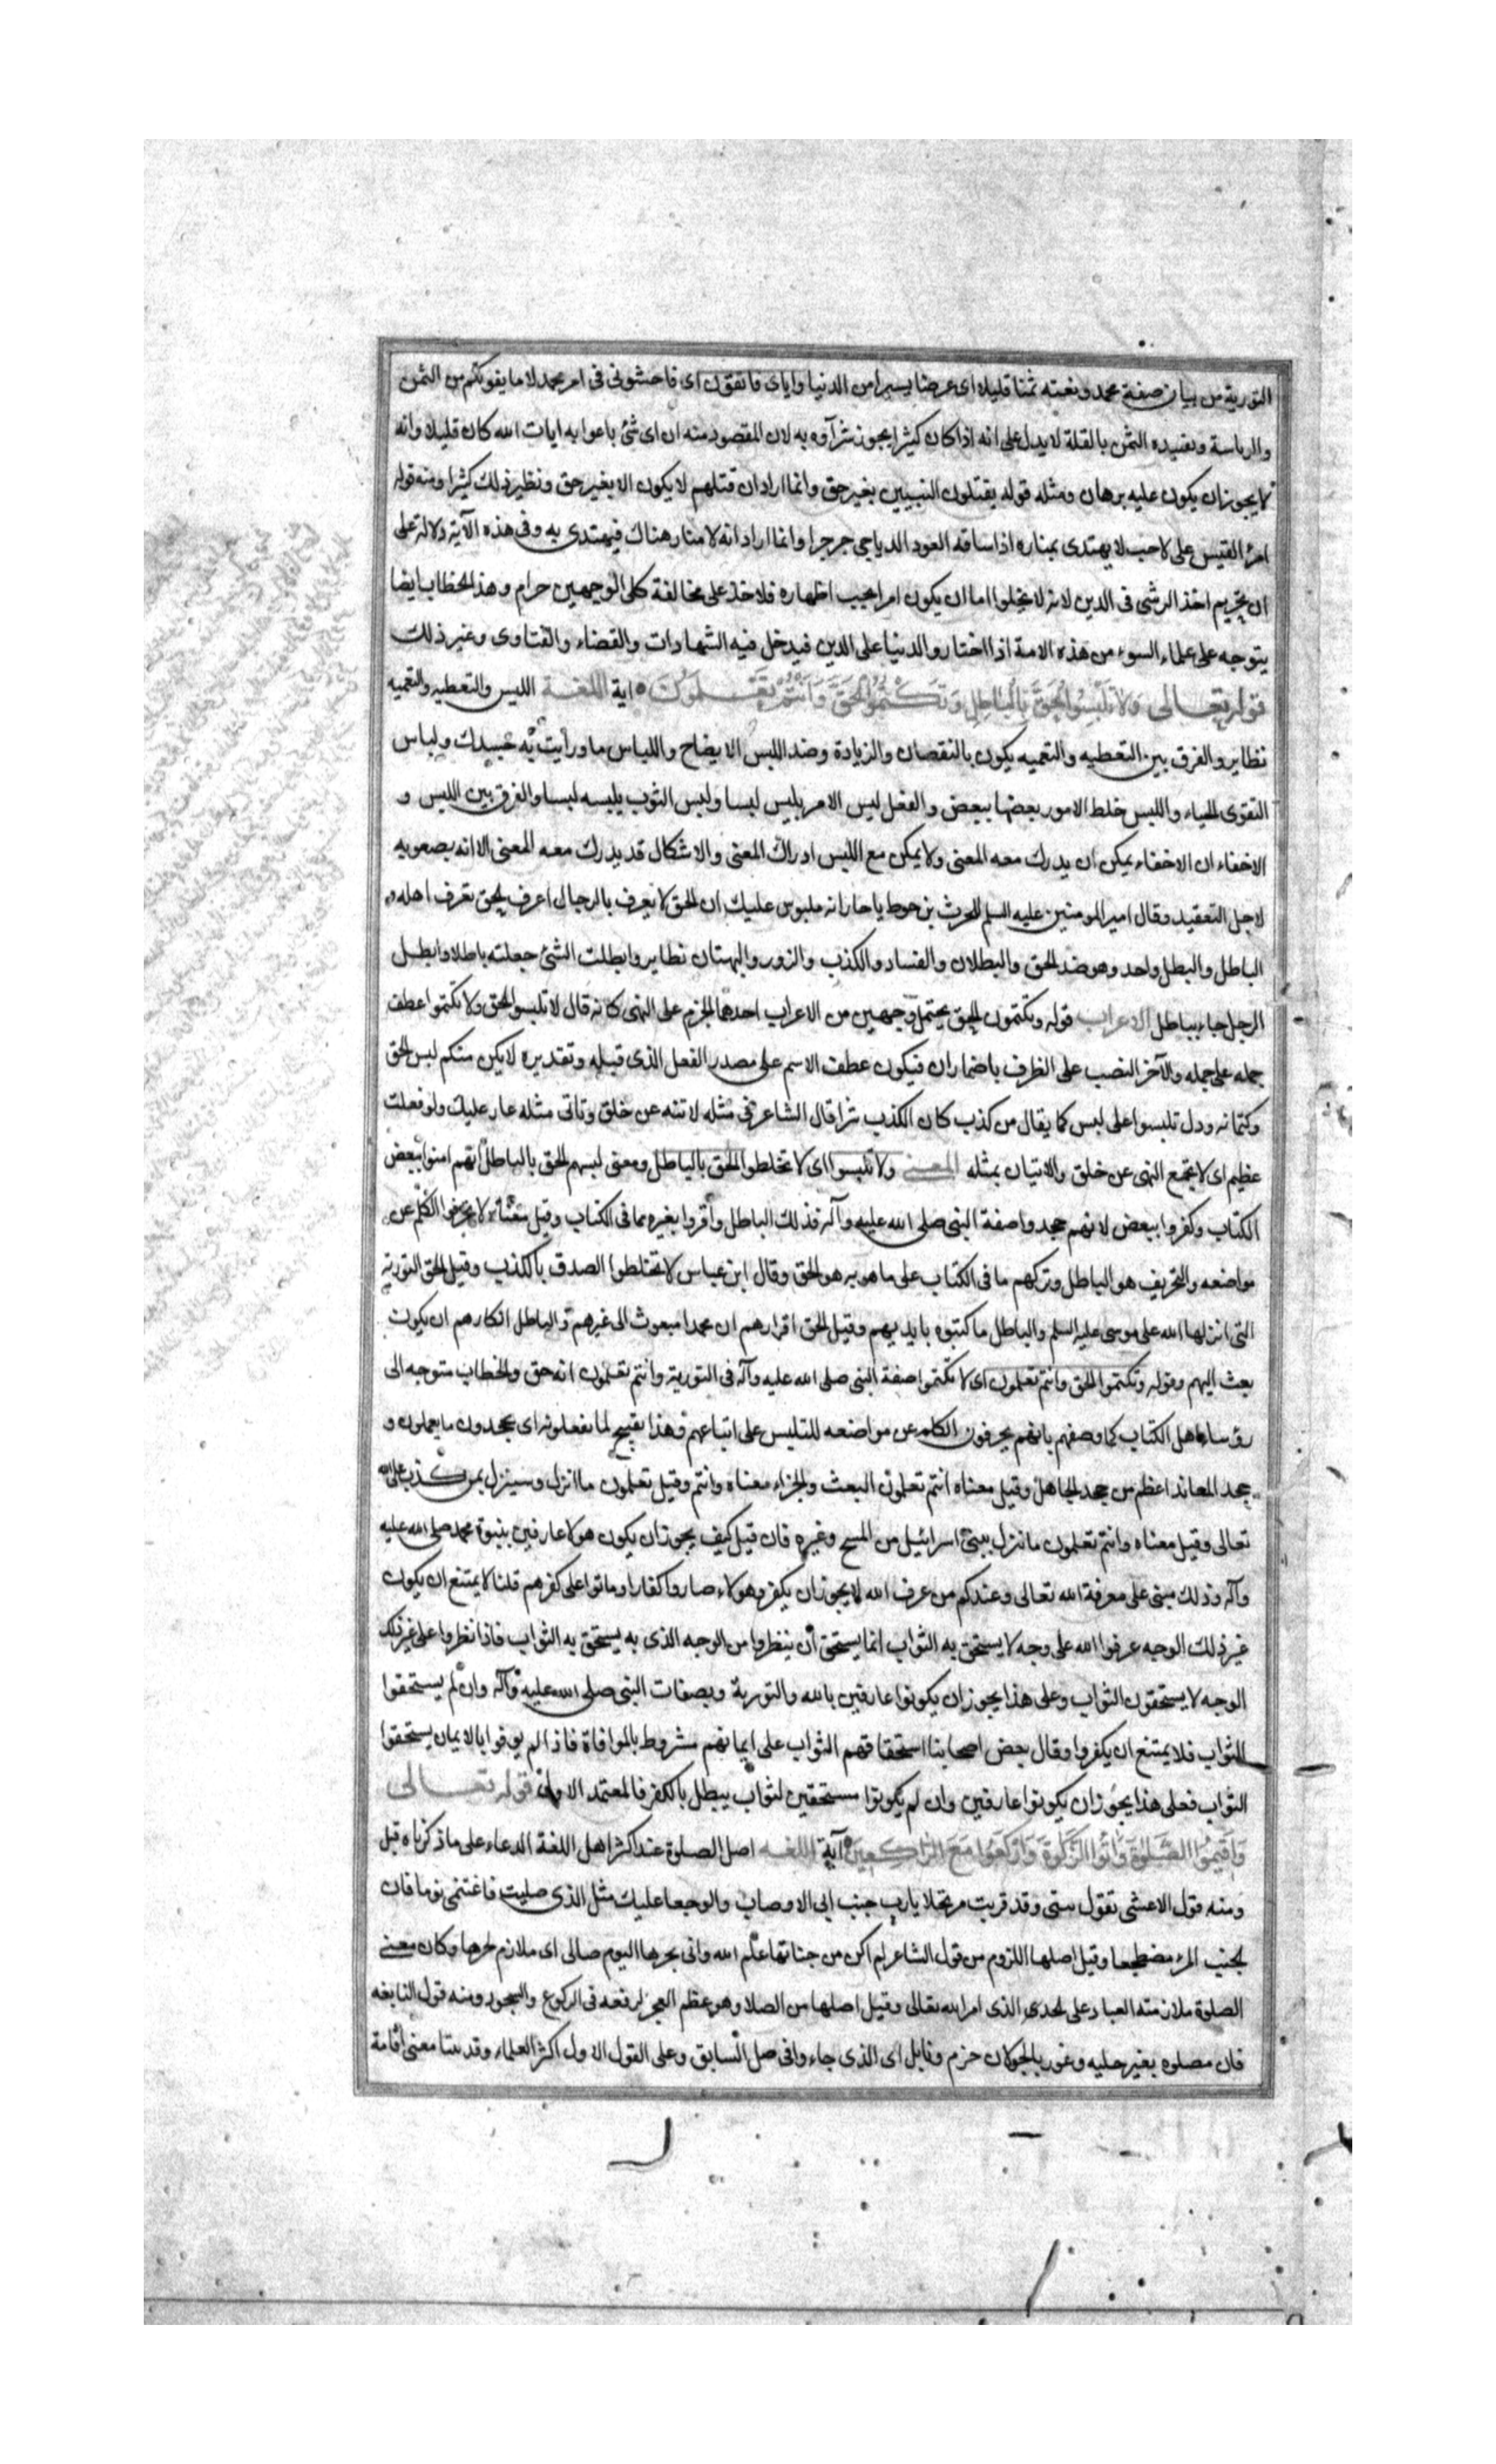 التورية من بيان صفة محمد ونعته ثمنا قليلا اى عرضا يسيرا من الدنيا واياى فاتقون اى فاخشونى فى امر محمد لا ما يفوتكم من الثمن
والرياسة وتقييده الثمن بالقلة لا يدل على انه اذا كان كثيرا يجوز شرآؤه به لان المقصود منه ان اى شئ باعوا به ايات الله كان قليلا وانه
لا يجوز ان يكون عليه برهان ومثله قوله يقتلون النبيين بغير حق وانما اراد ان قتلهم لا يكون الا بغير حق ونظير ذلك كثيرا ومنه قوله
امرئ القيس على لاحب لا يهتدى بمناره اذا سافه العود الديا جى جرجرا وانما اراد انه لا منار هناك فيهتدى به وفى هذه الآية دلالة على
ان تحريم اخذ الرشى فى الدين لانه لا يخلوا اما ان يكون امرا يجب اظهاره فلاخذ على مخالفة كلى الوجهين حرام وهذا الخطاب ايضا
يتوجه على علماء السوء من هذه الامة اذا اختاروا الدنيا على الدين فيدخل فيه الشهادات والقضاء والفتاوى وغير ذلك
قوله تعالى وَلَا تَلْبِسُوا الْحَقَّ بِالْبَاطِلِ وَتَكْتُمُوا الْحَقَّ وَأَنْتُمْ تَعْلَمُونَ اية اللغة اللبس والتغطيه والتعميه
نظاير والفرق بين التغطيه والتعميه يكون بالنقصان والزيادة وضد اللبس الايضاح واللباس ما ورايت به جسدك ولباس
التقوى الحياء واللبس خلط الامور بعضها ببعض والفعل لبس الامر يلبس لبسا ولبس الثوب يلبسه لبسا والفرق بين اللبس و
الاخفاء ان الاخفاء يمكن ان يدرك معه المعنى ولا يمكن مع اللبس ادراك المعنى والاشكال قد يدرك معه المعنى الا انه بصعوبه
لاجل التعقيد وقال امير المومنين عليه السلم للحرث بن حوط يا حار انه ملبوس عليك ان الحق لا يعرف بالرجال اعرف الحق تعرف اهله و
الباطل والبطل واحد وهو ضد الحق والبطلان والفساد والكذب والزور والبهتان نظاير وابطلت الشئ جعلته باطلا وابطل
الرجل جاء بباطل الاعراب قوله وتكتمون الحق يحتمل وجهين من الاعراب احدهما الجزم على النهى كانه قال لا تلبسوا الحق ولا تكتموا عطف
جمله على جمله والآخر النصب على الظرف باضمار ان فيكون عطف الاسم على مصدر الفعل الذى قبله وتقديره لا يكن منكم لبس الحق
وكتمانه ودل تلبسوا على لبس كما يقال من كذب كان الكذب شرا قال الشاعر فى مثله لا تنه عن خلق وتاتى مثله عار عليك ولو فعلت
عظيم اى لا يجتمع النهى عن خلق والاتيان بمثله المعنى ولا تلبسوا اى لا تخلطوا الحق بالباطل ومعنى لبسهم الحق بالباطل انهم امنوا ببعض
الكتاب وكفروا ببعض لانهم جحدوا صفة النبى صلى الله عليه وآله فذلك الباطل واقروا بغيره مما فى الكتاب وقيل معناه لا يحرفوا الكلم عن
مواضعه والتحريف هو الباطل وتركهم ما فى الكتاب على ما هو به هو الحق وقال ابن عباس لا تختلطوا الصدق بالكذب وقيل الحق التورية
التى انزلها الله على موسى عليه السلم والباطل ما كتبوه بايديهم وقيل الحق اقرارهم ان محمدا مبعوث الى غيرهم والباطل انكارهم ان يكون
بعث اليهم وقوله وتكتموا الحق وانتم تعلمون اى لا تكتموا صفة النبى صلى الله عليه وآله فى التورية وانتم تعلمون انه حق والخطاب متوجه الى
رؤساء اهل الكتاب كما وصفهم بانهم يحرفون الكلم عن مواضعه للتلبيس على اتباعهم وهذا تقبيح لما يفعلونه اى يجحدون ما يعلمون و
جحد المعاند اعظم من جحد الجاهل وقيل معناه انتم تعلمون البعث والجزاء معناه وانتم وقيل تعلمون ما انزل وسينزل بمن كذب على الله
تعالى وقيل معناه وانتم تعلمون ما نزل ببنى اسرائيل من المسخ وغيره فان قيل كيف يجوز ان يكون هولا عارفين بنبوة محمد صلى الله عليه
وآله وذلك مبنى على معرفة الله تعالى وعندكم من عرف الله لا يجوز ان يكفر وهولاء صاروا كفارا وماتوا على كفرهم قلنا لا يمتنع ان يكون
غير ذلك الوجه عرفوا الله على وجه لا يستحق به الثواب انما يستحق ان ينظروا من الوجه الذى به يستحق به الثواب فاذا نظروا على غير ذلك
الوجه لا يستحقون الثواب وعلى هذا يجوز ان يكونوا عارفين بالله والتورية وبصفات النبى صلى الله عليه وآله وان لم يستحقوا
الثواب فلا يمتنع ان يكفروا وقال بعض اصحابنا استحقاقهم الثواب على ايمانهم مشروط بالموافاة فاذا لم يوفوا بالايمان يستحقوا
الثواب فعلى هذا يجوز ان يكونوا عارفين وان لم يكونوا مستحقين لثواب يبطل بالكفر فالمعتمد الاول قوله تعالى
وَأَقِيمُوا الصَّلٰوةَ وَآتُوا الزَّكٰوةَ وَارْكَعُوا مَعَ الرَّاكِعِينَ آية اللغه اصل الصلوة عند اكثر اهل اللغة الدعاء على ما ذكرناه قبل
ومنه قول الاعشى تقول بنتى وقد قربت مرتحلا يا رب جنب ابى الاوصاب والوجعا عليك مثل الذى صليت فاغتمضى نوما فان
لجنب المرء مضطجعا وقيل اصلها اللزوم من قول الشاعر لم اكن من جناتها علم الله وانى بحرها اليوم صالى اى ملازم لحرها وكان معنى
الصلوة ملازمته العباد على الحدى الذى امر الله تعالى وقيل اصلها من الصلا وهو عظم العجز لرفعه فى الركوع والسجود ومنه قول النابغه
فان مصلوه بغير جليه وغور بالجولان حزم ونايل اى الذى جاء وافى صل السابق وعلى القول الاول اكثر العلماء وقد بينا معنى اقامة